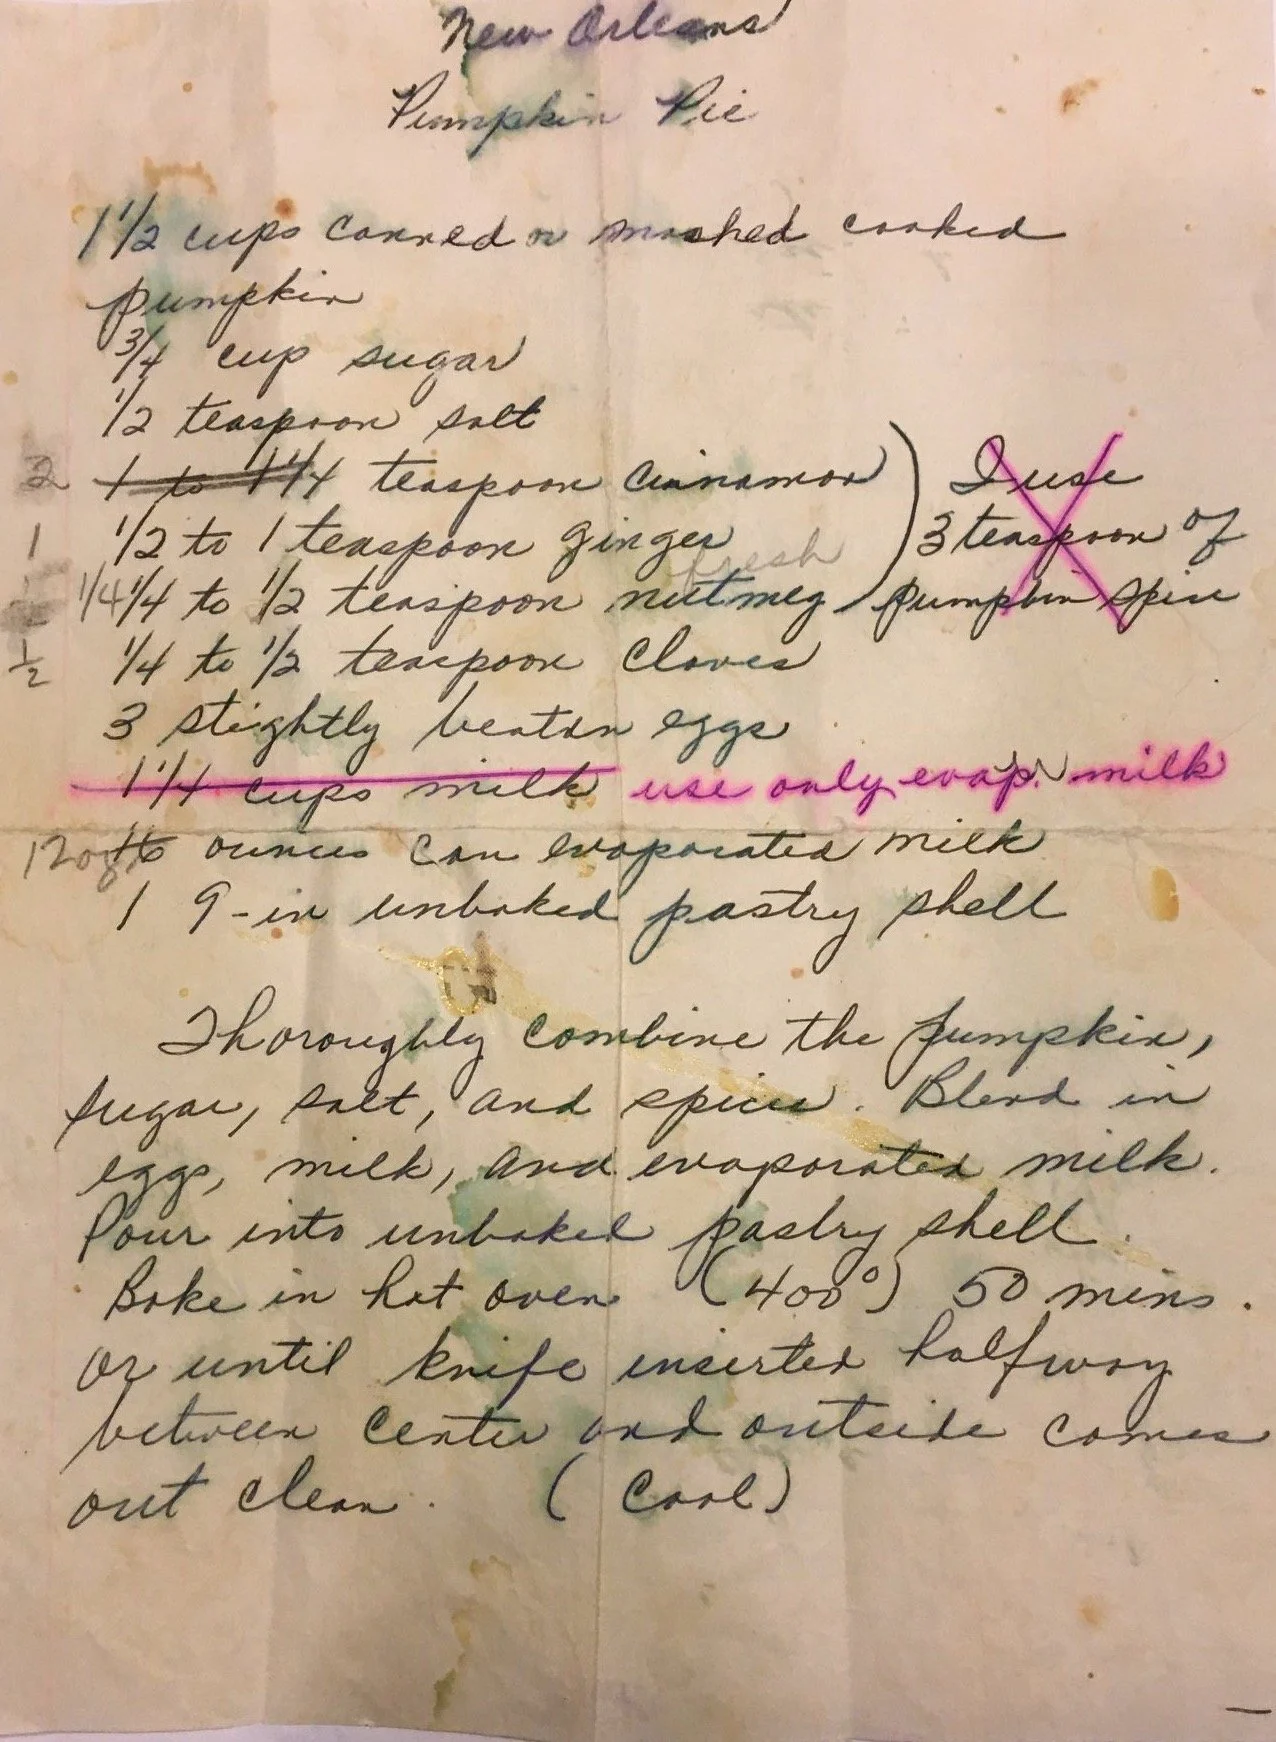 New Orleans
Pumpkin Pie
1 1/2 cups canned or mashed cooked
pumpkin
3/4 cup sugar
1/2 teaspoon salt
2 1 to 1 1/4 teaspoon cinnamon ) I use
1 1/2 to 1 teaspoon ginger 3 teaspoon of
fresh
1/4 1/4 to 1/2 teaspoon nutmeg pumpkin spice
1/2 1/4 to 1/2 teaspoon cloves
3 slightly beaten eggs
1 1/4 cups milk use only evap. milk
12oz ounces can evaporated milk
1 9-in unbaked pastry shell
Thoroughly combine the pumpkin,
sugar, salt, and spices. Blend in
eggs, milk, and evaporated milk.
Pour into unbaked pastry shell.
Bake in hot oven (400°) 50 mins.
or until knife inserted halfway
between center and outside comes
out clean. (Cool)